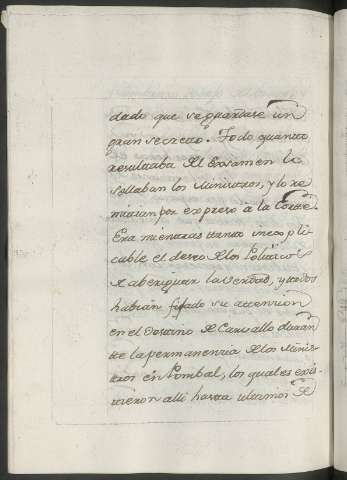 dado que se guardase un
gran secreto. Todo quanto
resultaba del Examen lo
sellaban los Ministros, y lo re
mitian por expreso à la Corte.
Era mientras tanto inexpli
cable el deseo de los Politicos
de aberiguar la verdad, y todos
habian fijado su attencion
en el Destino de Carvallo duran
te la permanencia de los Minis
tros en Pombal, los quales exis
tieron alli hasta ultimos de